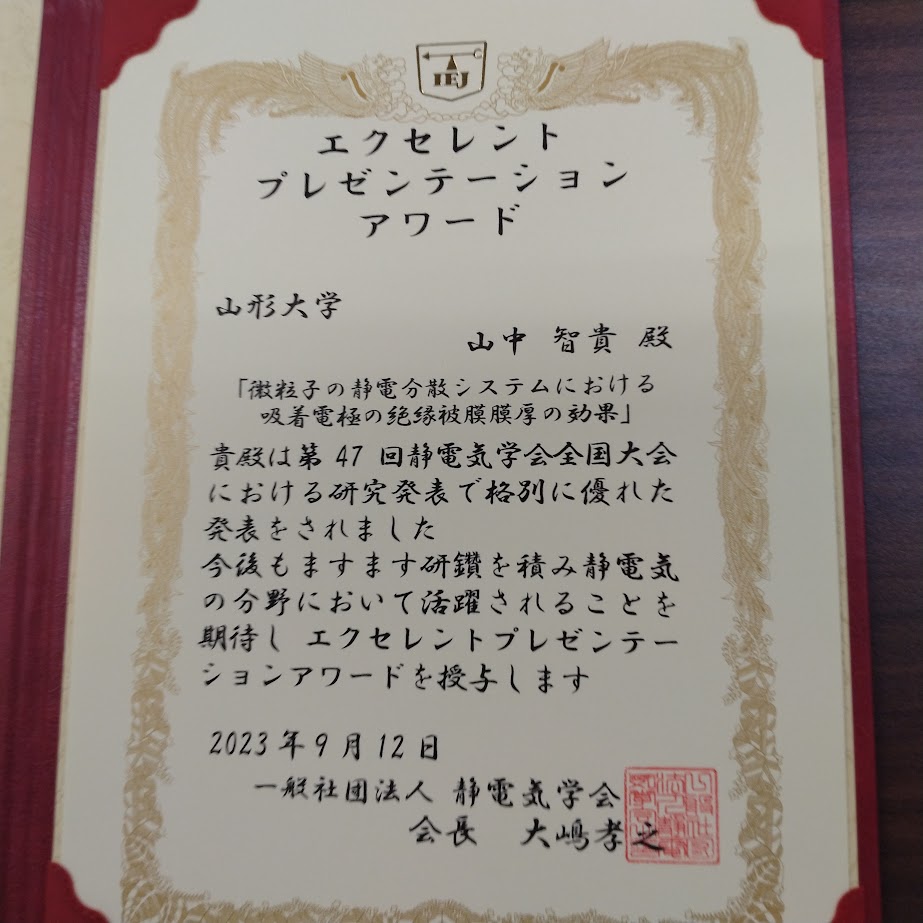 C
IEJ
エクセレント
プレゼンテーション
アワード
山形大学
山中 智貴 殿
「微粒子の静電分散システムにおける
吸着電極の絶縁被膜膜厚の効果」
貴殿は第 47 回静電気学会全国大会
における研究発表で格別に優れた
発表をされました
今後もますます研鑽を積み静電気
の分野において活躍されることを
期待し エクセレントプレゼンテー
ションアワードを授与します
2023 年 9 月 12 日
一般社団法人 静電気学会
会長 大嶋孝之